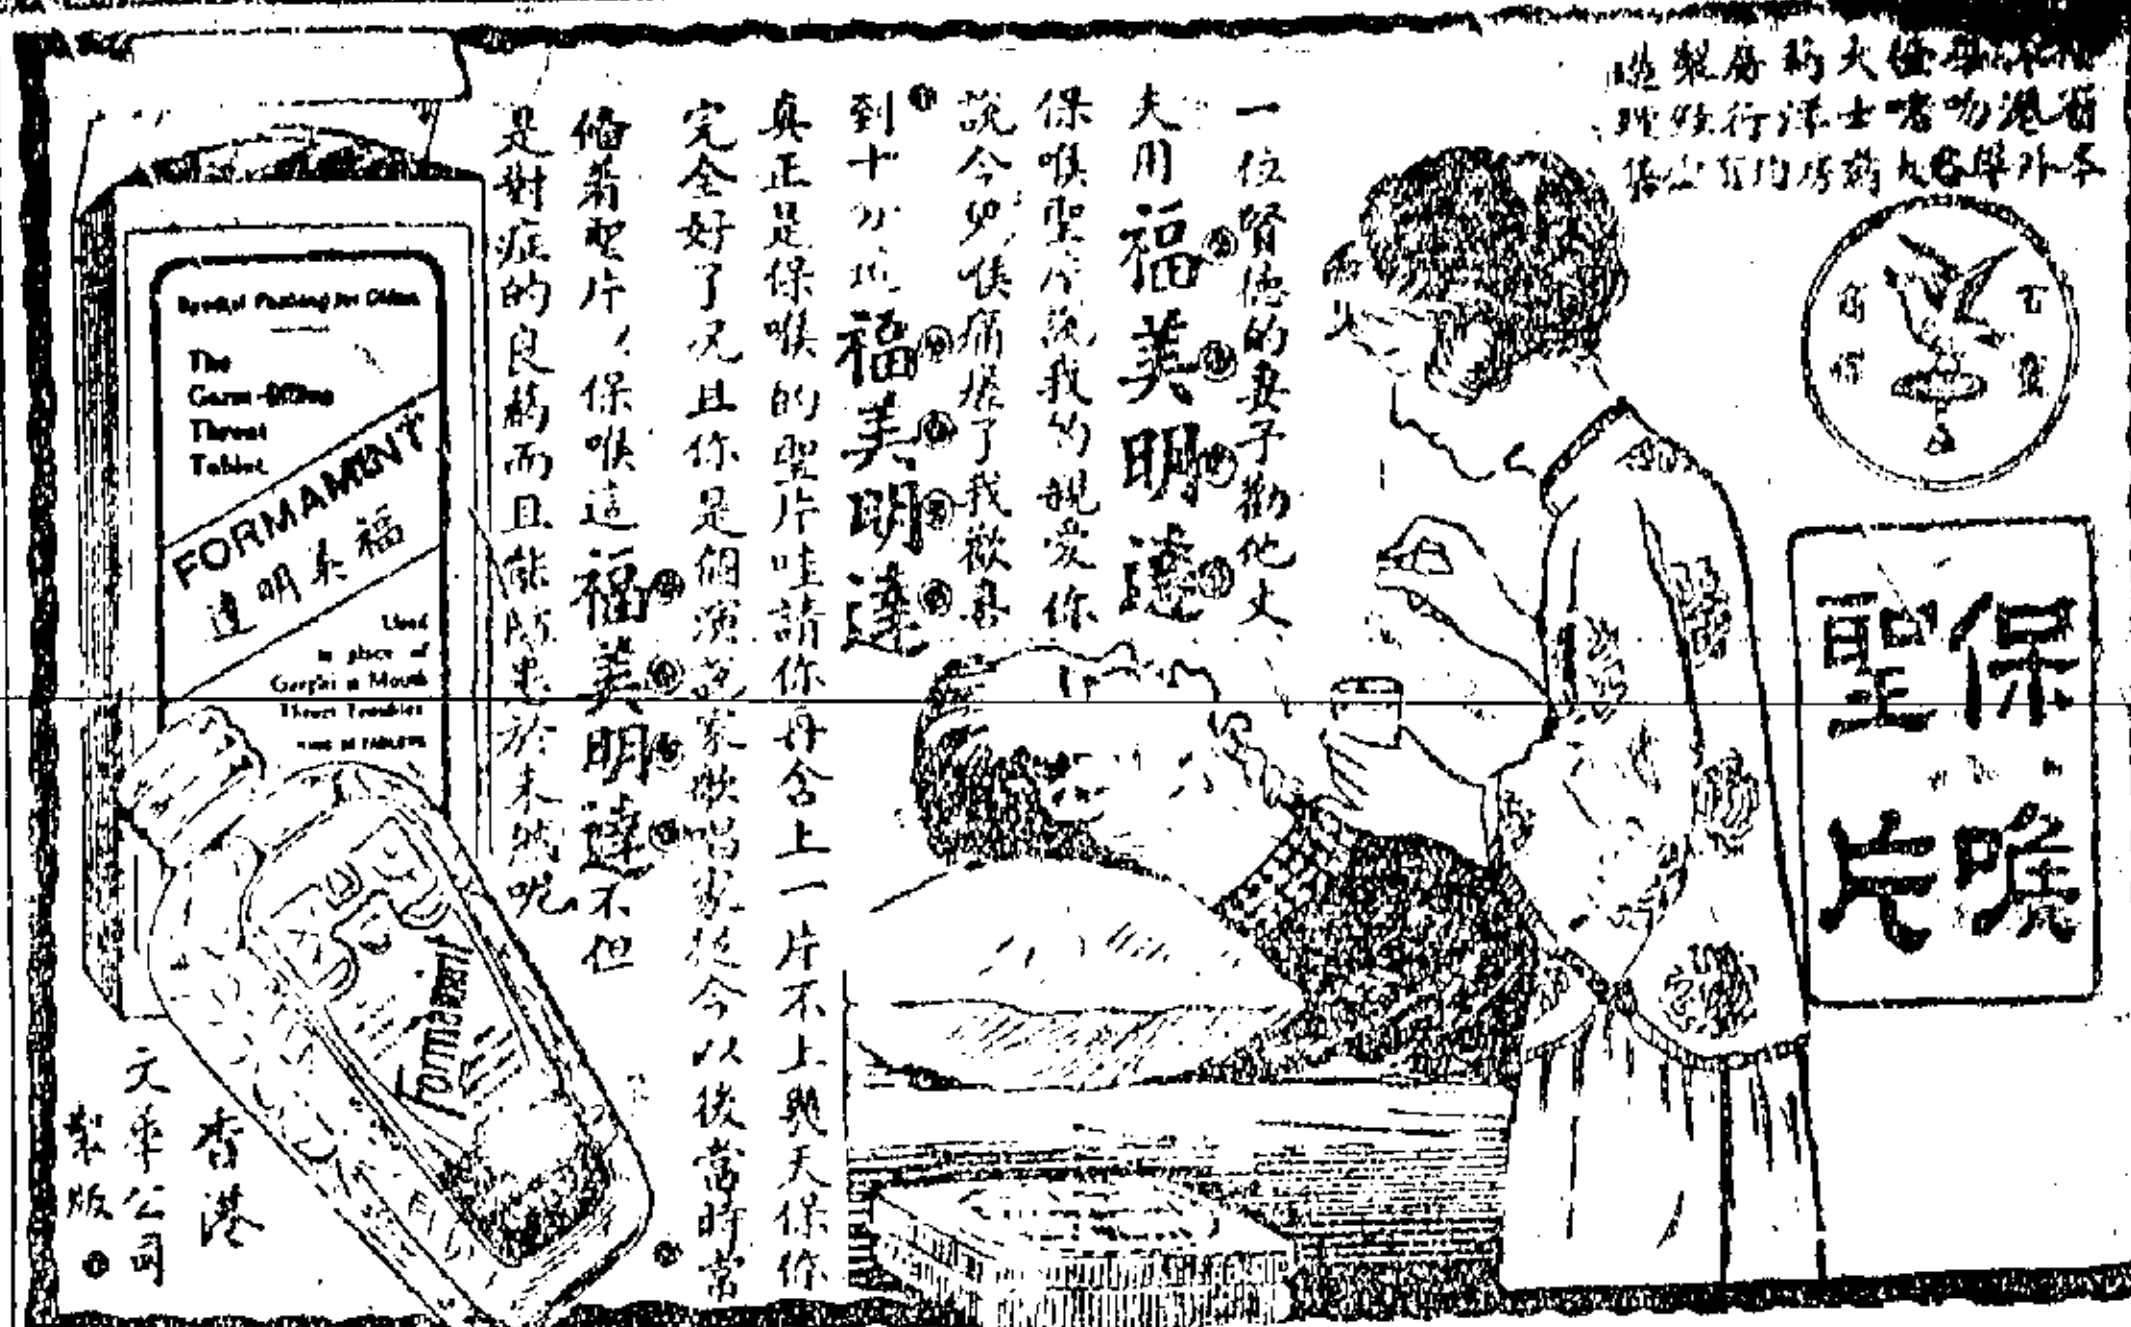 大藥房製造
洋行經理
各大藥房均有出售
商標
保喉
聖片
一位賢德的妻子勸他丈
夫用福美明達
保喉聖片說我的親愛你
說今如喉痛爆了我歡喜
到十分地福美明達
真正是保喉的聖片哇請你再含上一片不上與天保你
完全好了況且你是個演說家歌唱家從今以後當時常
備着聖片、保喉這福美明達不但
是對症的良藥而且能防患於未然呢
Special Packing for China
The
Germ-Killing
Throat
Tablet
FORMAMINT
福美明達
Used
in place of
Gargles in Mouth
Throat Troubles
Formamint
香港
文華公司
製版